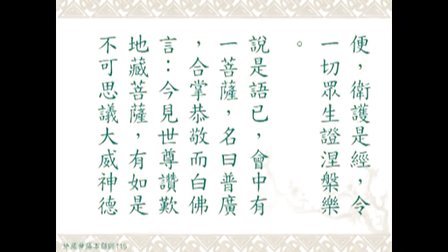 便，衛護是經，令
一切眾生證涅槃樂
。
說是語已，會中有
一菩薩，名曰普廣
，合掌恭敬而白佛
言：今見世尊讚歎
地藏菩薩，有如是
不可思議大威神德